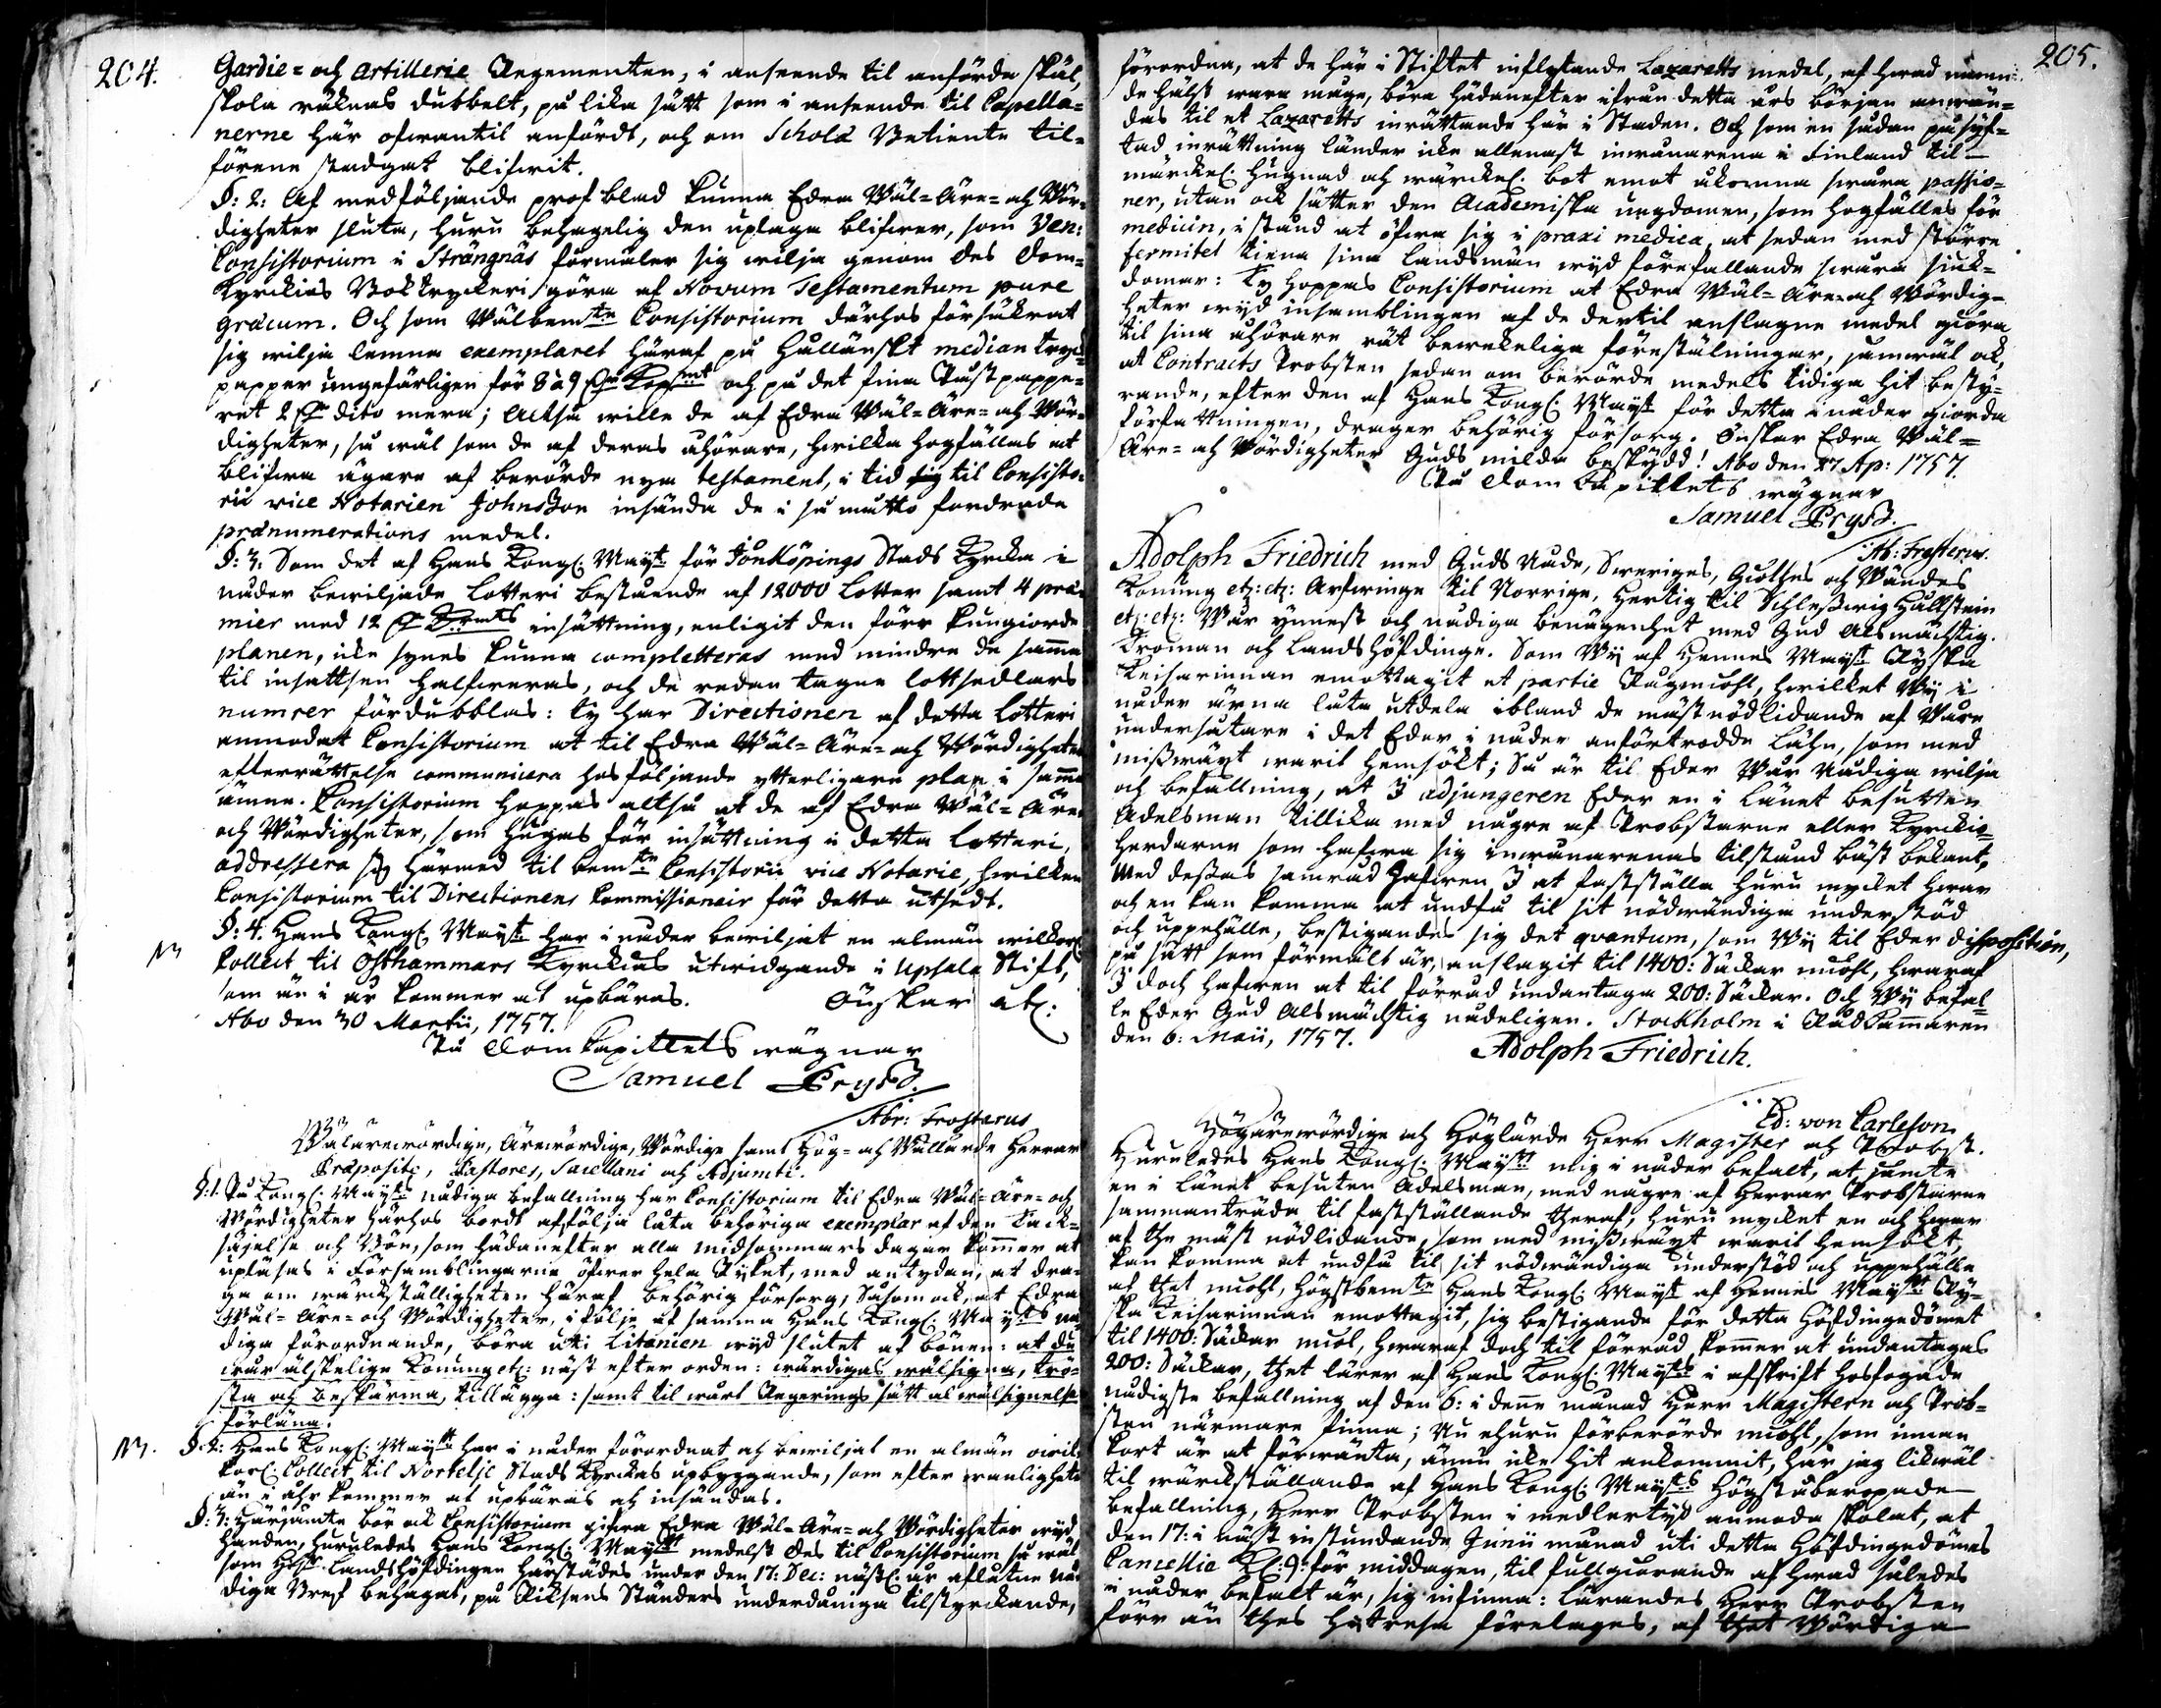 204.
Gardie- och Artillerie Regementen, i anseende til anförda skäl,
skola räknas dubbelt, på lika sätt som i anseende til Capella-
nerne här ofwantil anfördt, och om Scholæ Betiente til-
förene stadgat blifwit.
§: 2: Af medföljande prof blad kunna Edra Wäl-Äre- och Wör-
digheter sluta, huru behagelig den uplaga blifwer, som Ven:
Consistorium i Strängnäs förmäler sig wilja genom des Dom-
Kyrckias Boktryckeri göra af Novum Testamentum pure
græcum. Och som Wälbem:te Consistorium därhos försäkrat
sig wilja lemna exemplaret häraf på Hålländskt median tryck-
papper ungefärligen för 8 à 9 Dr Kopmt och på det fina Postpappe-
ret 2 Dr dito mera; Altså wille de af Edra Wäl-Äre- och Wör-
digheter, så wäl som de af deras åhörare, hwilka hogfällas at
blifwa ägare af berörde nya testament, i tid til Consisto-
rii vice Notarien Johnszon insända de i så måtto fordrade
prænumerations medel.
§: 3. Som det af Hans Kongl: Mayst för Jönköpings Stads Kyrcka i
nåder bewiljade Lotteri bestående af 12000 Lotter samt 4 præ-
mier med 12 Dr Kmts insättning, enligit den förr kungiorde
planen, icke synes kunna completteras med mindre de samma
til insattsen halfweras, och de redan tagne lottsedlars
numrer fördubblas: ty har Directionen af detta Lotteri
anmodat Consistorium at til Edra Wäl-Äre- och Wördigheters
efterrättelse communicera hosföljande ytterligare plan i samma
ämne. Consistorium hoppas altså at de af Edra Wäl-Äre-
och Wördigheter, som hugas för insättning i detta Lotteri,
addressera sig härmed til bem:te Consistorii vice Notarie, hwilken
Consistorium til Directionens Commissionair för detta utsedt.
NB
§: 4. Hans Kongl: Mayst har i nåder bewiljat en almän wilkorl:
Collect til Östhammars Kyrckias utwidgande i Upsala Stift,
som än i år kommer at upbäras. Önskar etc:
Abo den 30 Martii, 1757.
På Dom Capittels wägnar
Samuel Pryss.
Abr: Frosterus
Wälärewördige, Ärewördige, Wördige samt Hög- och Wällärde Herrar
Præpositi, Pastores, Sacellani och Adjuncti.
§: 1. På Kongl: Mayts nådiga befallning har Consistorium til Edra Wäl-Äre- och
Wördigheter härhos bordt affölja låta behöriga exemplar af den Tack-
säjelse och Bön, som hädanefter alla midsommars dagar kommer at
upläsas i Församblingarne öfwer hela Ryket, med antydan, at dra-
ga om wärckställigheten häraf behörig försorg, Såsom ock, at Edra
Wäl-Äre- och Wördigheter, i följe af samma Hans Kongl: Mayts nå-
diga förordnande, böra uti Litanien wyd slutet af bönen: at du
wår älskelige Konung etc: näst efter orden: wärdigas wälsigna, trö-
sta och beskärma, tillägga: samt til wårt Regerings sätt al wälsignelse
förläna.
NB.
§: 2: Hans Kongl: Mayst har i nåder förordnat och bewiljat en almän wil-
korl: Collect til Norteljé Stads Kyrckas upbyggande, som efter wanligheten
än i åhr kommer at upbäras och insändas.
§: 3: Härjämte bör ock Consistorium gifwa Edra Wäl-Äre- och Wördigheter wyd
handen, huruledes Hans Kongl: Mayst medelst des til Consistorium så wäl
som Landshöfdingen härstädes under den 17: Dec: nästl: år aflåtne nå-
diga Bref behagat, på Riksens Ständers underdåniga tilstyrckande,
205.
förordna, at de här i Stiftet inflytande Lazaretts medel, af hwad namn
de hälst wara måge, böra hädanefter ifrån detta års början anwän-
das til et Lazaretts inrättande här i Staden. Och som en sådan påsyf-
tad inrättning länder icke allenast inwånarena i Finland til
märckel: hugnad och wärckel: bot emot åkomna swåra passio-
ner, utan ock sätter den Academiska ungdomen, som hogfälles för
medicin, i stånd at öfwa sig i praxi medica, at sedan med större
fermitet tiena sina landsmän wyd förefallande swåra siuk-
domar: Ty hoppas Consistorium at Edra Wäl-Äre- och Wördig-
heter wyd insamblingen af de dertil anslagne medel giöra
til sina åhörare rät bewekeliga förestälningar, jämwäl ock,
at Contracts Probsten sedan om berörde medels tidiga hit besty-
rande, efter den af Hans Kongl: Mayst för detta i nåder giorda
författningen, drager behörig försorg. Önskar Edra Wäl-
Äre- och Wördigheter Guds milda beskydd! Abo den 27 Ap: 1757.
På Dom Capittels wägnar
Samuel Pryss.
Ab: Frosterus.
Adolph Friedrich med Guds Nåde, Sweriges, Giöthes och Wändes
Konung etc: etc: Arfwinge til Norrige, Hertig til Schleßwig Hallstein
etc: etc: Wår ynnest och nådiga benägenhet med Gud Alsmächtig.
Troman och Landshöfdinge. Som Wy af Hennes Mayst Ryska
Keisarinnan emottagit et partie Rågmiöhl, hwilket Wy i
nåder ärna låta utdela ibland de mäst nödlidande af Wåre
undersåtare i det Eder i nåder anförtrodde Lähn, som med
mißwäxt warit hemsökt; Så är til Eder Wår Nådiga wilja
och befallning, at I adjungeren Eder en i Länet besutten
Adelsman tillika med någre af Probstarne eller Kyrckio-
herdarne som hafwa sig inwånarenas tilstånd bäst bekant,
Med deßas samråd hafwen I at fastställa huru mycket hwar
och en kan komma at undfå til sit nödwändiga understöd
och uppehälle, bestigandes sig det qvantum, som Wy til Eder disposition,
på sätt som förmält är, anslagit til 1400: Säckar miöhl, hwaraf
I doch hafwen at til förråd undantaga 200: Säckar. Och Wy befal-
le Eder Gud Alsmächtig nådeligen. Stockholm i RådCammaren
den 6: Maii, 1757.
Adolph Friedrich.
Ed: von Carleson
Högärewördige och Höglärde Herr Magister och Probst.
Huruledes Hans Kongl: Mayst mig i nåder befalt, at jämte
en i Länet besuten Adelsman, med några af Herrar Probstarne
sammanträda til fastställande theraf, huru mycket en och hwar
af the mäst nödlidande, som med mißwäxt warit hemsökt,
kan komma at undfå til sit nödwändiga understöd och uppehälle
af thet miöhl, högstbem:te Hans Kongl: Mayst af Hennes Mayst Ry-
ska Keisarinnan emottagit, sig bestigande för detta Höfdingedömet
til 1400: Säckar miöl, hwaraf doch til förråd kommer at undantagas
200: Säckar, thet lärer af Hans Kongl: Mayts i afskrift hosfogade
nådigste befallning af den 6: i denne månad Herr Magistern och Prob-
sten närmare finna; Nu ehuru förberörde miöhl, som innan
kort är at förwänta, ännu icke hit ankommit, har jag likwäl
til wärckställande af Hans Kongl: Mayts högståberopade
befallning, Herr Probsten i medlertyd anmoda skolat, at
den 17: i näst instundande Junii månad uti detta Höfdingedömes
Cancellie Kl: 9: för middagen, til fullgiorande af hwad således
i nåder befalt är, sig infinna: Lärandes Herr Probsten
förr än thes hitresa förelages, af thet Wördiga